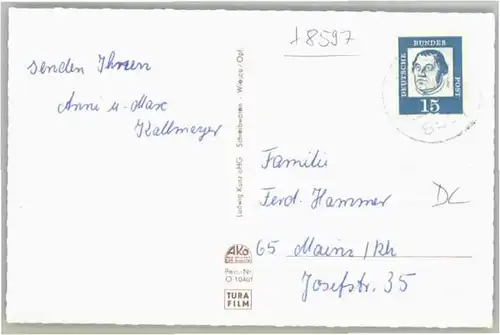 +8597
senden Ihnen
Anni u. Max
Kallmeyer
Ludwig Kunz oHG Schreibwaren - Wiesau/Opf.
DEUTSCHE BUNDES POST
15
Familie
Ferd. Hammer
DC
65 Mainz/Rh
Josefstr. 35
AKO
Best.-Nr.
TURA
FILM